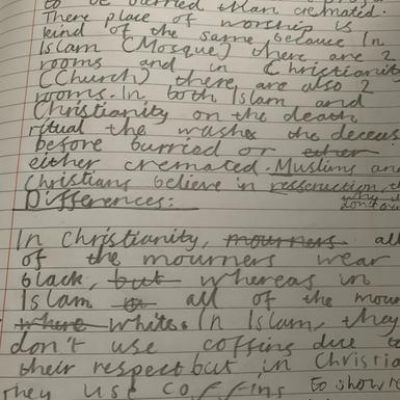 to be burried than cremated.
There place of worship is
kind of the same because In
Islam (Mosque) there are 2
rooms and in Christianity
(Church) there are also 2
rooms. In both Islam and
Christianity on the death
ritual the washes the deceas
before burried or either
either cremated. Muslims an
Christians believe in
Differences:
In Christianity, mourners all
of the mourners wear
black, but whereas in
Islam all of the mou
where white. In Islam, they
don't use coffins due to
their respect but in Christia
they use coffins to show re